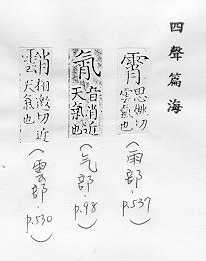 四聲篇海
霄 思切
雲氣也
(雨部 p.537)
音消近
天氣也
(气部 p.98)
相激切近
天氣也
(雲部 p.530)